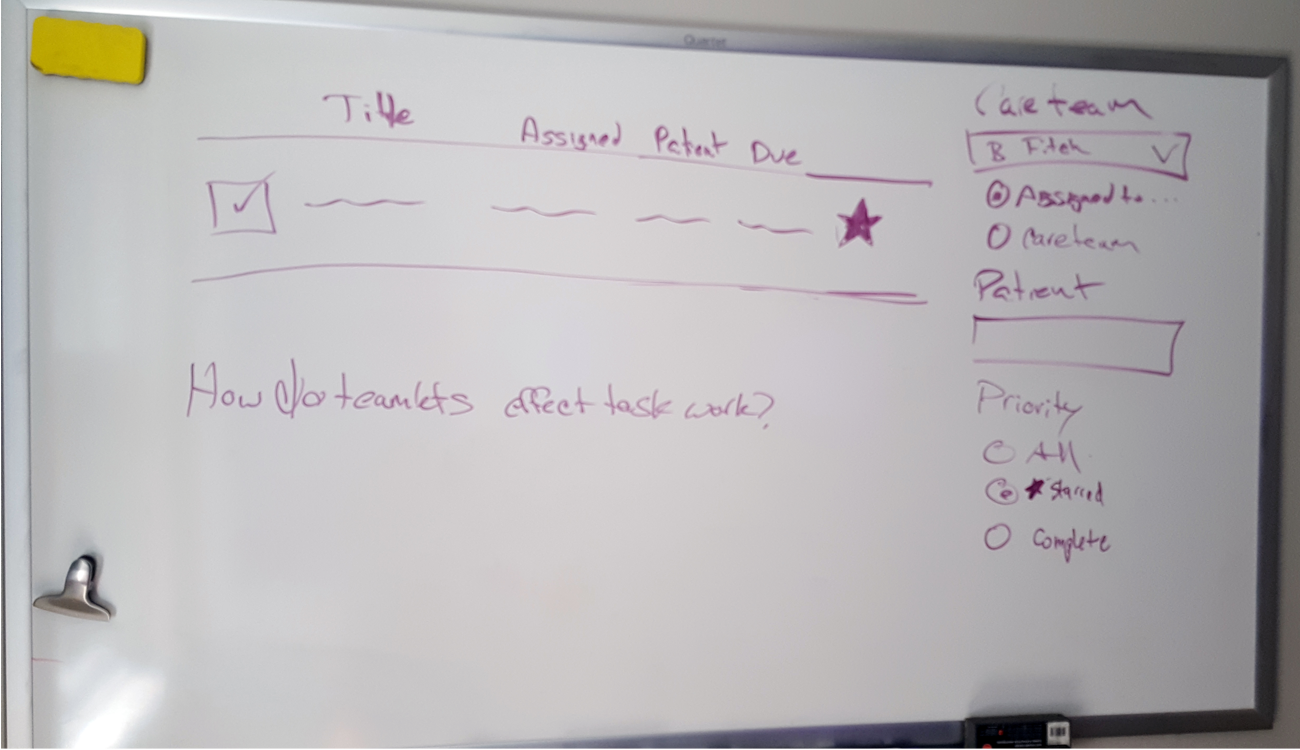 Quartet
Title Assigned Patient Due
How do teamlets affect task work?
Care team
B Fitch
Assigned to...
Careteam
Patient
Priority
All
Starred
Complete